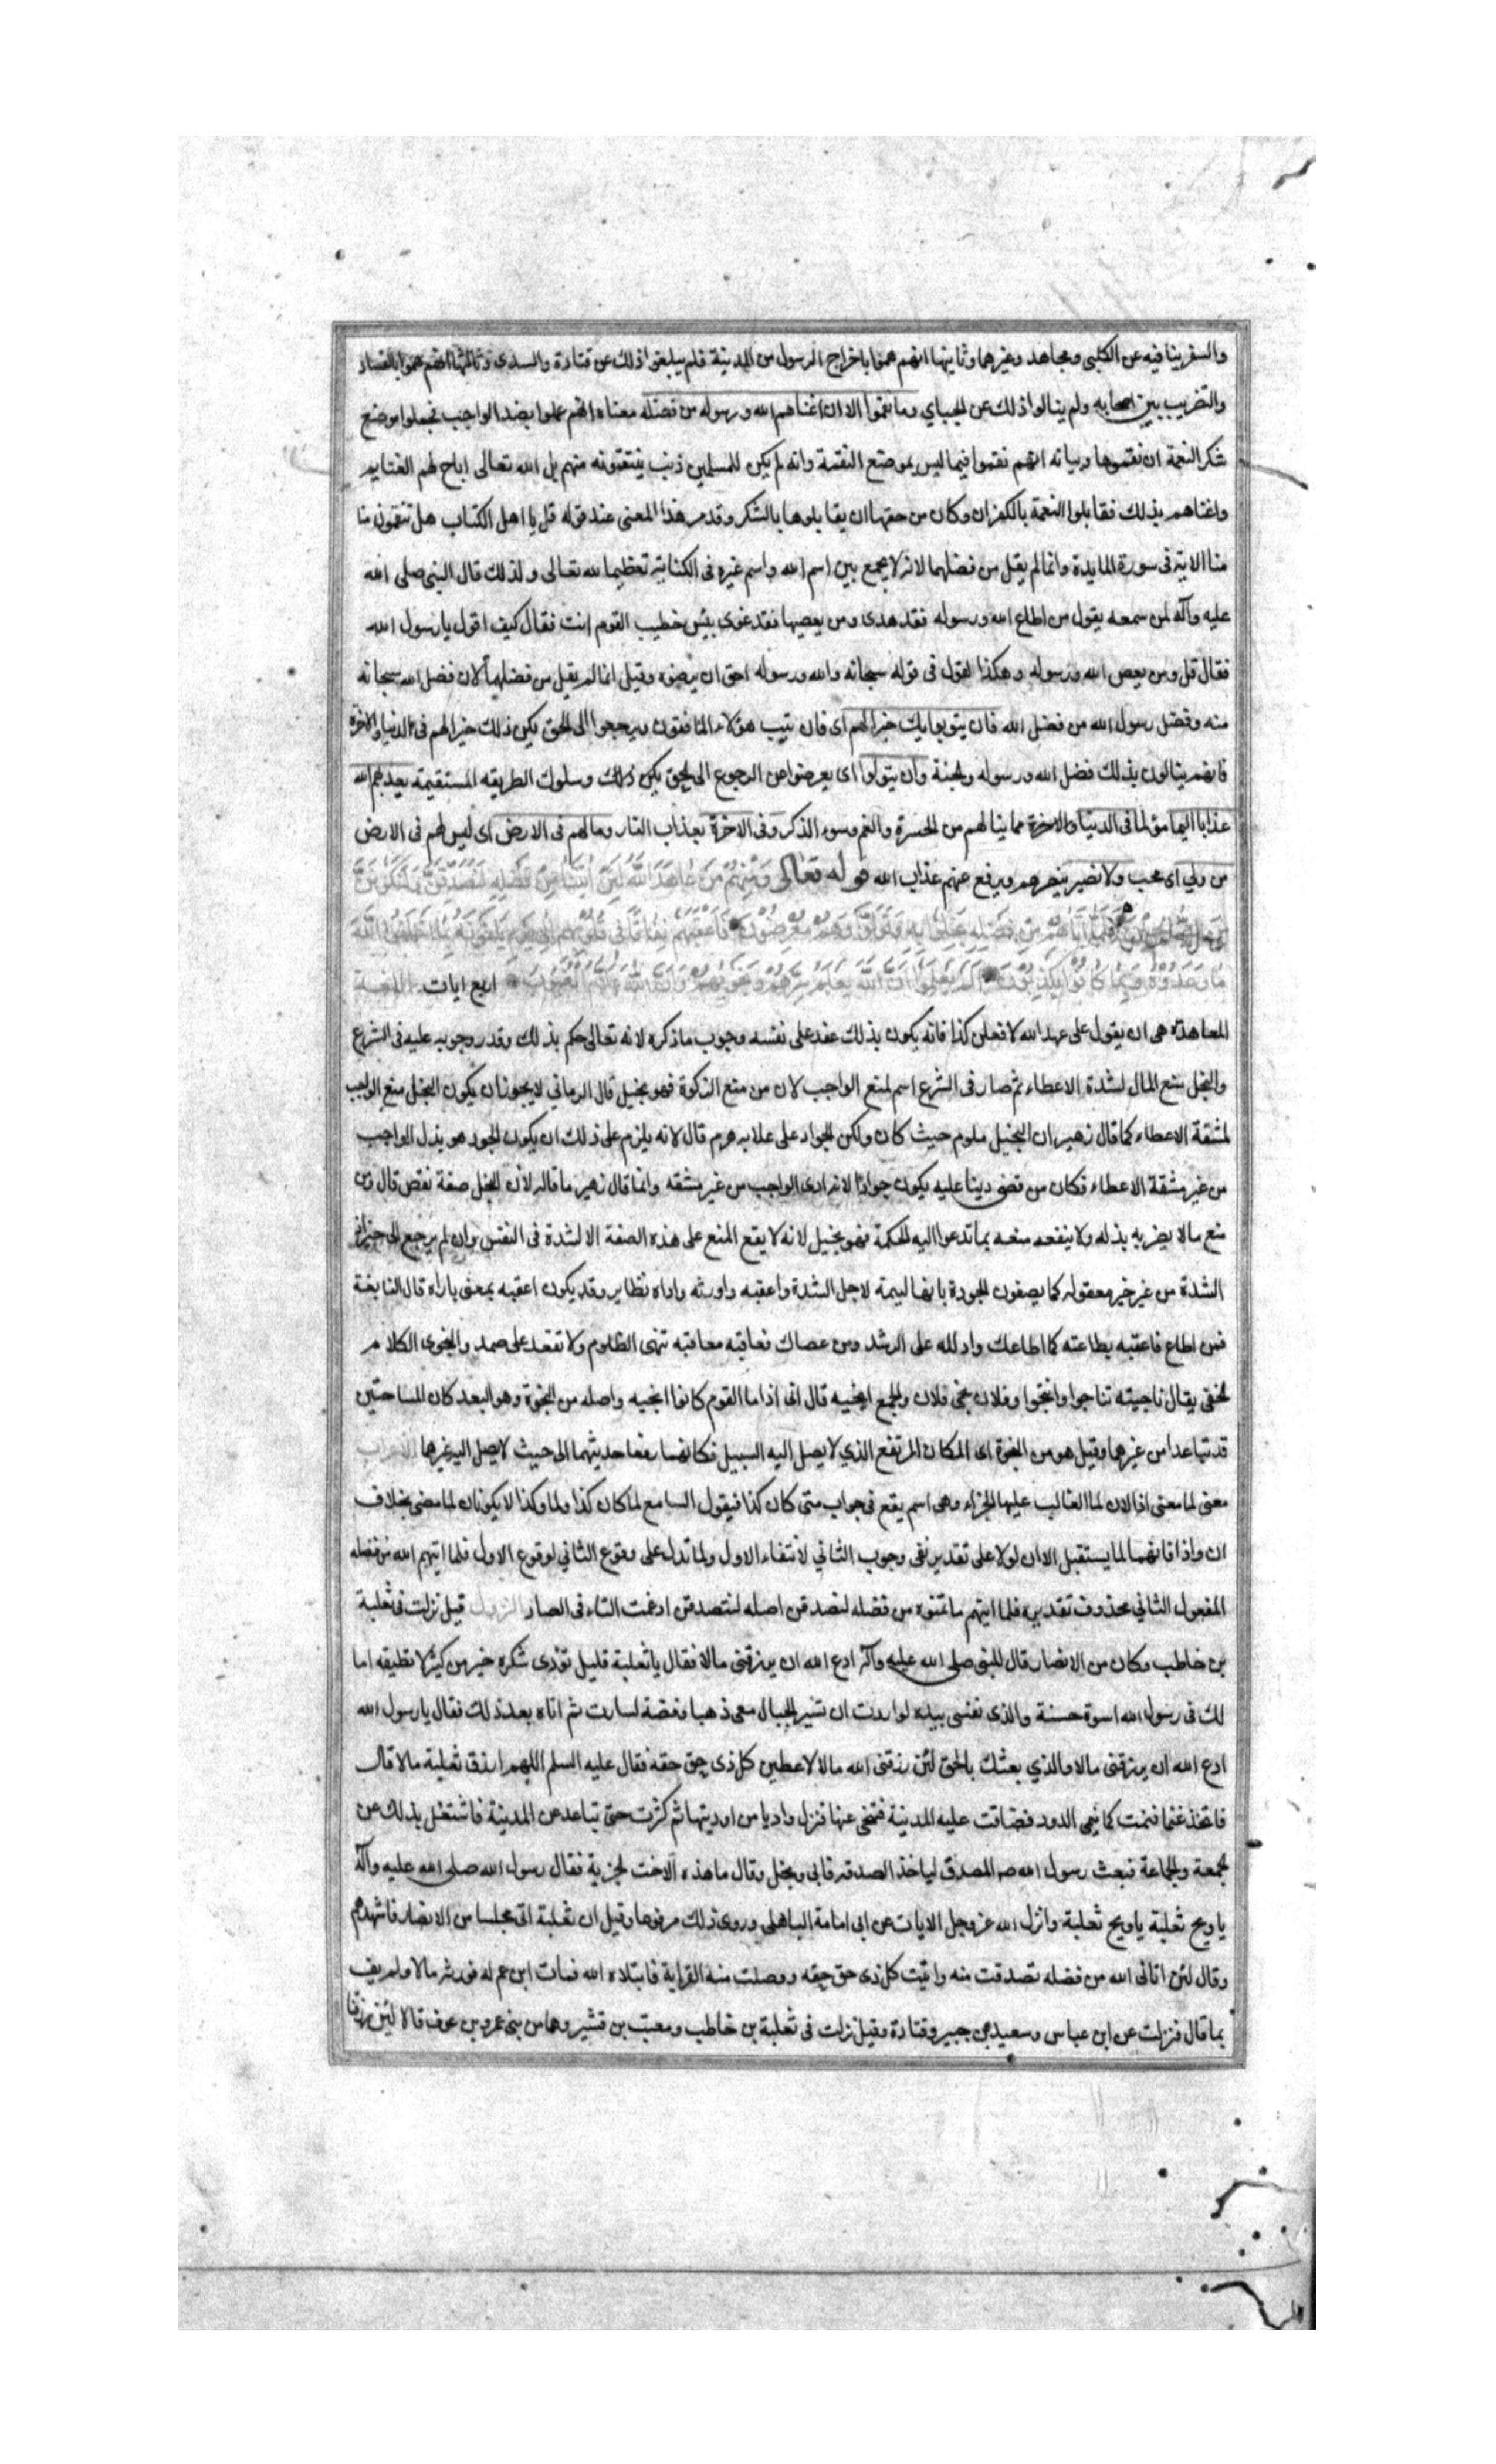 والسفر بينا فيه عن الكلبي ومجاهد وغيرهما وثانيها انهم هموا باخراج الرسول من المدينة فلم يبلغوا ذلك عن قتادة والسدى وثالثها انهم هموا بالفساد
والتضريب بين اصحابه ولم ينالوا ذلك عن الجباي وما نقموا الا ان اغناهم الله ورسوله من فضله معناه انهم عملوا بضد الواجب فجعلوا موضع
شكر النعمة ان نقموها وبيانه انهم نقموا فيما ليس بموضع النقمة وانه لم يكن للمسلمين ذنب ينتقمونه منهم بل الله تعالى اباح لهم الغنايم
واغناهم بذلك فقابلوا النعمة بالكفران وكان من حقها ان يقابلوها بالشكر وقد مر هذا المعنى عند قوله قل يا اهل الكتاب هل تنقمون منا
منا الاية فى سورة المايدة وانما لم يقل من فضلهما لانه لا يجمع بين اسم الله واسم غيره فى الكناية تعظيما لله تعالى ولذلك قال النبي صلى الله
عليه وآله لمن سمعه يقول من اطاع الله ورسوله فقد هدى ومن يعصهما فقد غوى بئس خطيب القوم انت فقال كيف اقول يا رسول الله
فقال قل ومن يعص الله ورسوله وهكذا القول فى قوله سبحانه والله ورسوله احق ان يرضوه وقيل انما لم يقل من فضلهما لان فضل الله سبحانه
منه وفضل رسول الله من فضل الله فان يتوبوا يك خيرا لهم اى فان يتب هؤلاء المنافقون ويرجعوا الى الحق يكن ذلك خيرا لهم فى الدنيا والاخرة
فانهم ينالون بذلك فضل الله ورسوله والجنة وان يتولوا اى يعرضوا عن الرجوع الى الحق وسلوك الطريقه المستقيمة يعذبهم الله
عذابا اليما فى الدنيا والاخرة مما ينالهم من الحسرة والغم وسوء الذكر وفى الاخرة بعذاب النار وما لهم فى الارض اى ليس لهم فى الارض
من ولي اى محب ولا نصير ينصرهم ويدفع عنهم عذاب الله قوله تعالى وَمِنْهُمْ مَنْ عَاهَدَ اللَّهَ لَئِنْ اٰتَانَا مِنْ فَضْلِهِ لَنَصَّدَّقَنَّ وَلَنَكُونَنَّ
مِنَ الصَّالِحِينَ فَلَمَّا آتَاهُمْ مِنْ فَضْلِهِ بَخِلُوا بِهِ وَتَوَلَّوْا وَهُمْ مُعْرِضُونَ فَاَعْقَبَهُمْ نِفَاقًا فِى قُلُوبِهِمْ اِلَى يَوْمِ يَلْقَوْنَهُ بِمَا اَخْلَفُوا اللَّهَ
مَا وَعَدُوهُ وَبِمَا كَانُوا يَكْذِبُونَ اَلَمْ يَعْلَمُوا اَنَّ اللَّهَ يَعْلَمُ سِرَّهُمْ وَنَجْوَاهُمْ وَاَنَّ اللَّهَ عَلَّامُ الْغُيُوبِ اربع ايات اللغة
المعاهدة هى ان يقول على عهد الله لافعلن كذا فانه يكون بذلك عقد على نفسه وجوب ما ذكره لانه تعالى حكم بذلك وقدر وجوبه عليه فى الشرع
والبخل منع المال لشدة الاعطاء ثم صار فى الشرع اسم لمنع الواجب لان من منع الزكوة فهو بخيل قال الرماني لا يجوز ان يكون البخل منع الواجب
لمشقة الاعطاء كما قال زهير ان البخيل ملوم حيث كان ولكن الجواد على علاته هرم قال لانه يلزم على ذلك ان يكون الجود هو بذل الواجب
من غير مشقة الاعطاء فكان من قضى دينا عليه يكون جوادا لانه ادى الواجب من غير مشقه وانما قال زهير ما قاله لان البخل صفة نقص قال ومن
منع مالا يضر به بذله ولا ينفعه منعه بما تدعوا اليه الحكمة فهو بخيل لانه لا يقع المنع على هذه الصفة الا لشدة فى النفس وان لم يرجع الى
الشدة من غير خير معقوله كما يصفون الجودة بانها لييمة لاجل الشدة واعقبه واورثه واداه نظاير وقد يكون اعقبه بمعنى جازاه قال النابغة
فمن اطاع فاعقبه بطاعته كما اطاعك وادلله على الرشد ومن عصاك فعاقبه معاقبة تنهى الظلوم ولا تقعد على ضمد والنجوى الكلام
الخفي يقال ناجيته تناجوا وانتجوا وفلان نجى فلان والجمع انجيه قال انى اذا ما القوم كانوا انجيه واصله من النجوة وهو البعد كان المتناجيين
قد تباعدا من غيرهما وقيل هو من النجوة اى المكان المرتفع الذي لا يصل اليه السبيل فكانهما رفعا حديثهما الى حيث لا يصل اليه غيرهما الاعراب
معنى لما معنى اذا الا ان لما الغالب عليها الجزاء وهى اسم يقع فى جواب متى كان كذا فيقول السامع لما كان كذا ولما وكذا لا يكونان لما مضى بخلاف
ان واذا فانهما لما يستقبل الا ان لولا على تقدير نفى وجوب الثاني لانتفاء الاول ولما تدل على وقوع الثاني لوقوع الاول فلما اتيهم الله من فضله
المفعول الثاني محذوف تقديره فلما اتيهم ما تمنوه من فضله لنصدقن اصله لنتصدقن ادغمت التاء فى الصاد النزول قيل نزلت فى ثعلبة
بن خاطب وكان من الانصار قال للنبى صلى الله عليه وآله ادع الله ان يرزقنى مالا فقال يا ثعلبة قليل تؤدى شكره خير من كثير لا تطيقه اما
لك فى رسول الله اسوة حسنة والذى نفسى بيده لو اردت ان تسير الجبال معى ذهبا وفضة لسارت ثم اتاه بعد ذلك فقال يا رسول الله
ادع الله ان يرزقنى مالا والذي بعثك بالحق لئن رزقنى الله مالا لاعطين كل ذى حق حقه فقال عليه السلم اللهم ارزق ثعلبة مالا قال
فاتخذ غنما فنمت كما ينمى الدود فضاقت عليه المدينة فتنحى عنها فنزل واديا من اوديتها ثم كثرت حتى تباعد عن المدينة فاشتغل بذلك عن
الجمعة والجماعة فبعث رسول الله صه المصدق لياخذ الصدقه فابى وبخل وقال ما هذه الا اخت الجزية فقال رسول الله صلى الله عليه وآله
يا ويح ثعلبة يا ويح ثعلبة وانزل الله عز وجل الايات عن ابى امامة الباهلى وروى ذلك مرفوعا وقيل ان ثعلبة اتى مجلسا من الانصار فاشهدهم
وقال لئن اتانى الله من فضله تصدقت منه واتيت كل ذى حق حقه ووصلت منه القرابة فابتلاه الله فمات ابن عم له فورثه مالا ولم يف
بما قال فنزلت عن ابن عباس وسعيد بن جبير وقتادة وقيل نزلت فى ثعلبة بن خاطب ومعتب بن قشير وهما من بنى عمرو بن عوف قالا لئن رزقنا